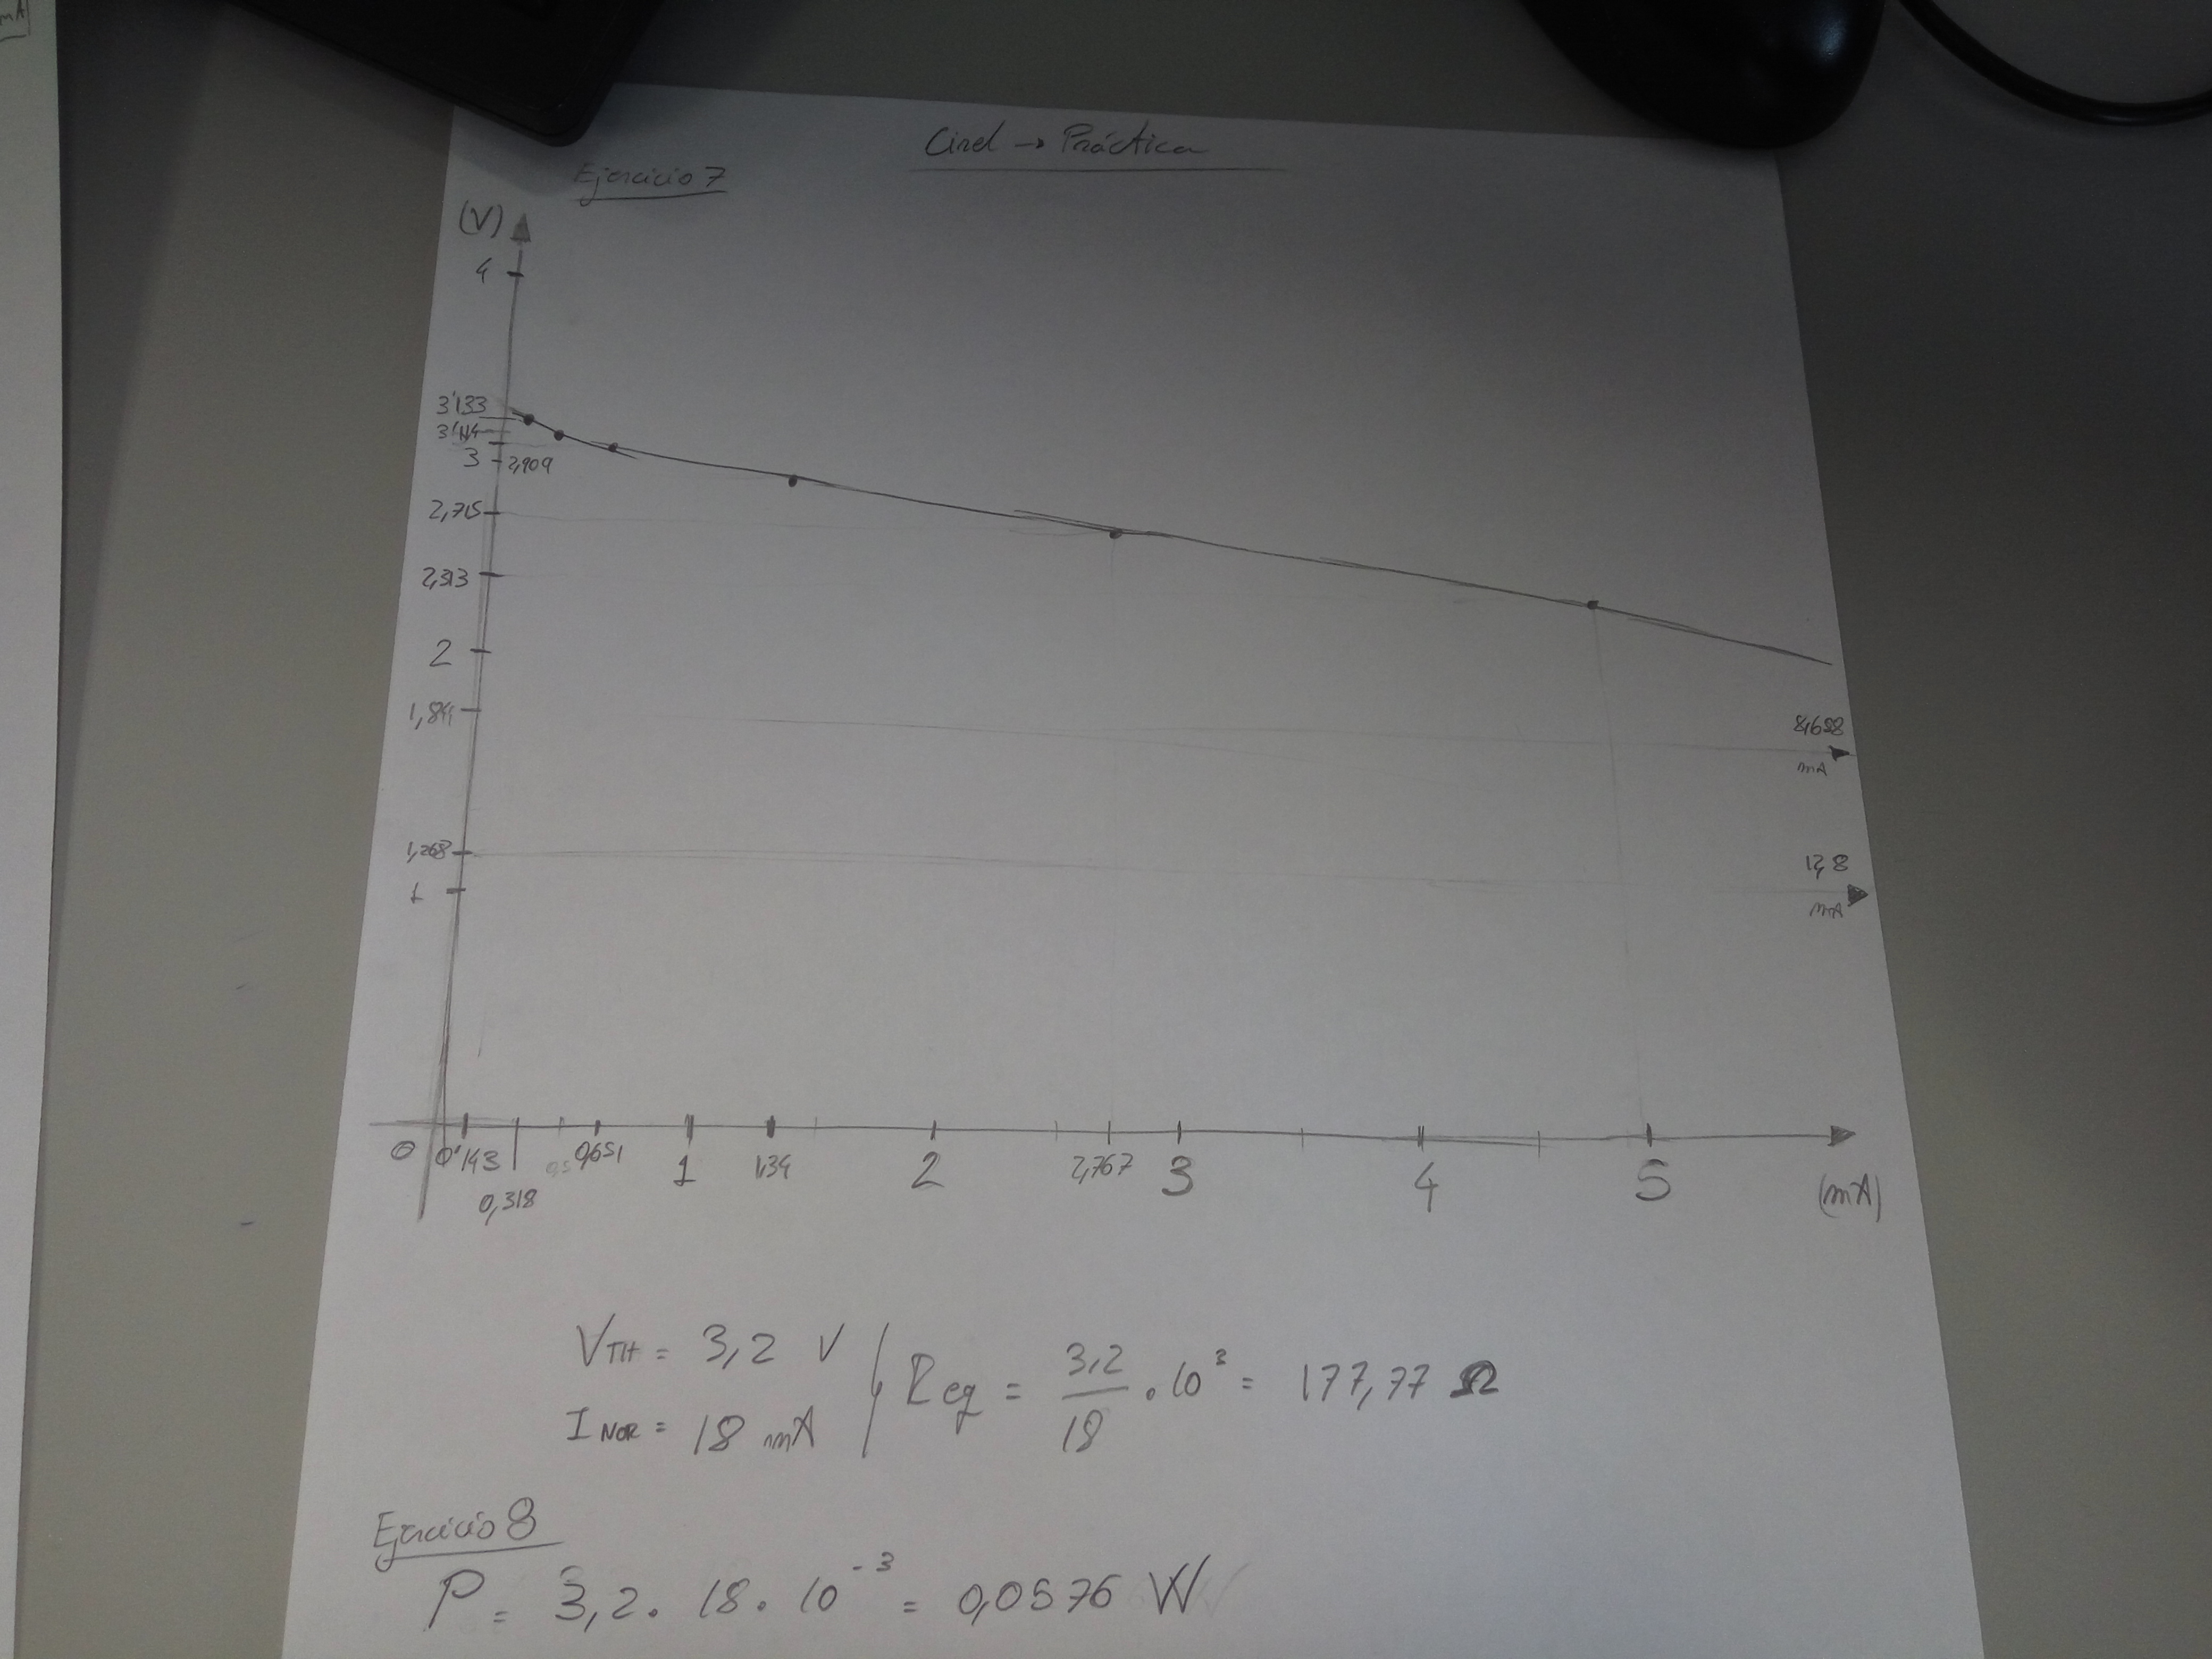 mA
Cirel → Práctica
Ejercicio 7
(V)
4
3'133
3'114
3
2,909
2,715
2
1,268
1
8,688
mA
12,8
mA
0
0'143
0,318
0,5
0,651
1
1,34
2
2,767
3
4
5
(mA)
VTH = 3,2 V
INOR = 18 mA
Req = 3,2/18 . 10³ = 177,77 Ω
Ejercicio 8
P = 3,2 . 18 . 10⁻³ = 0,0576 W